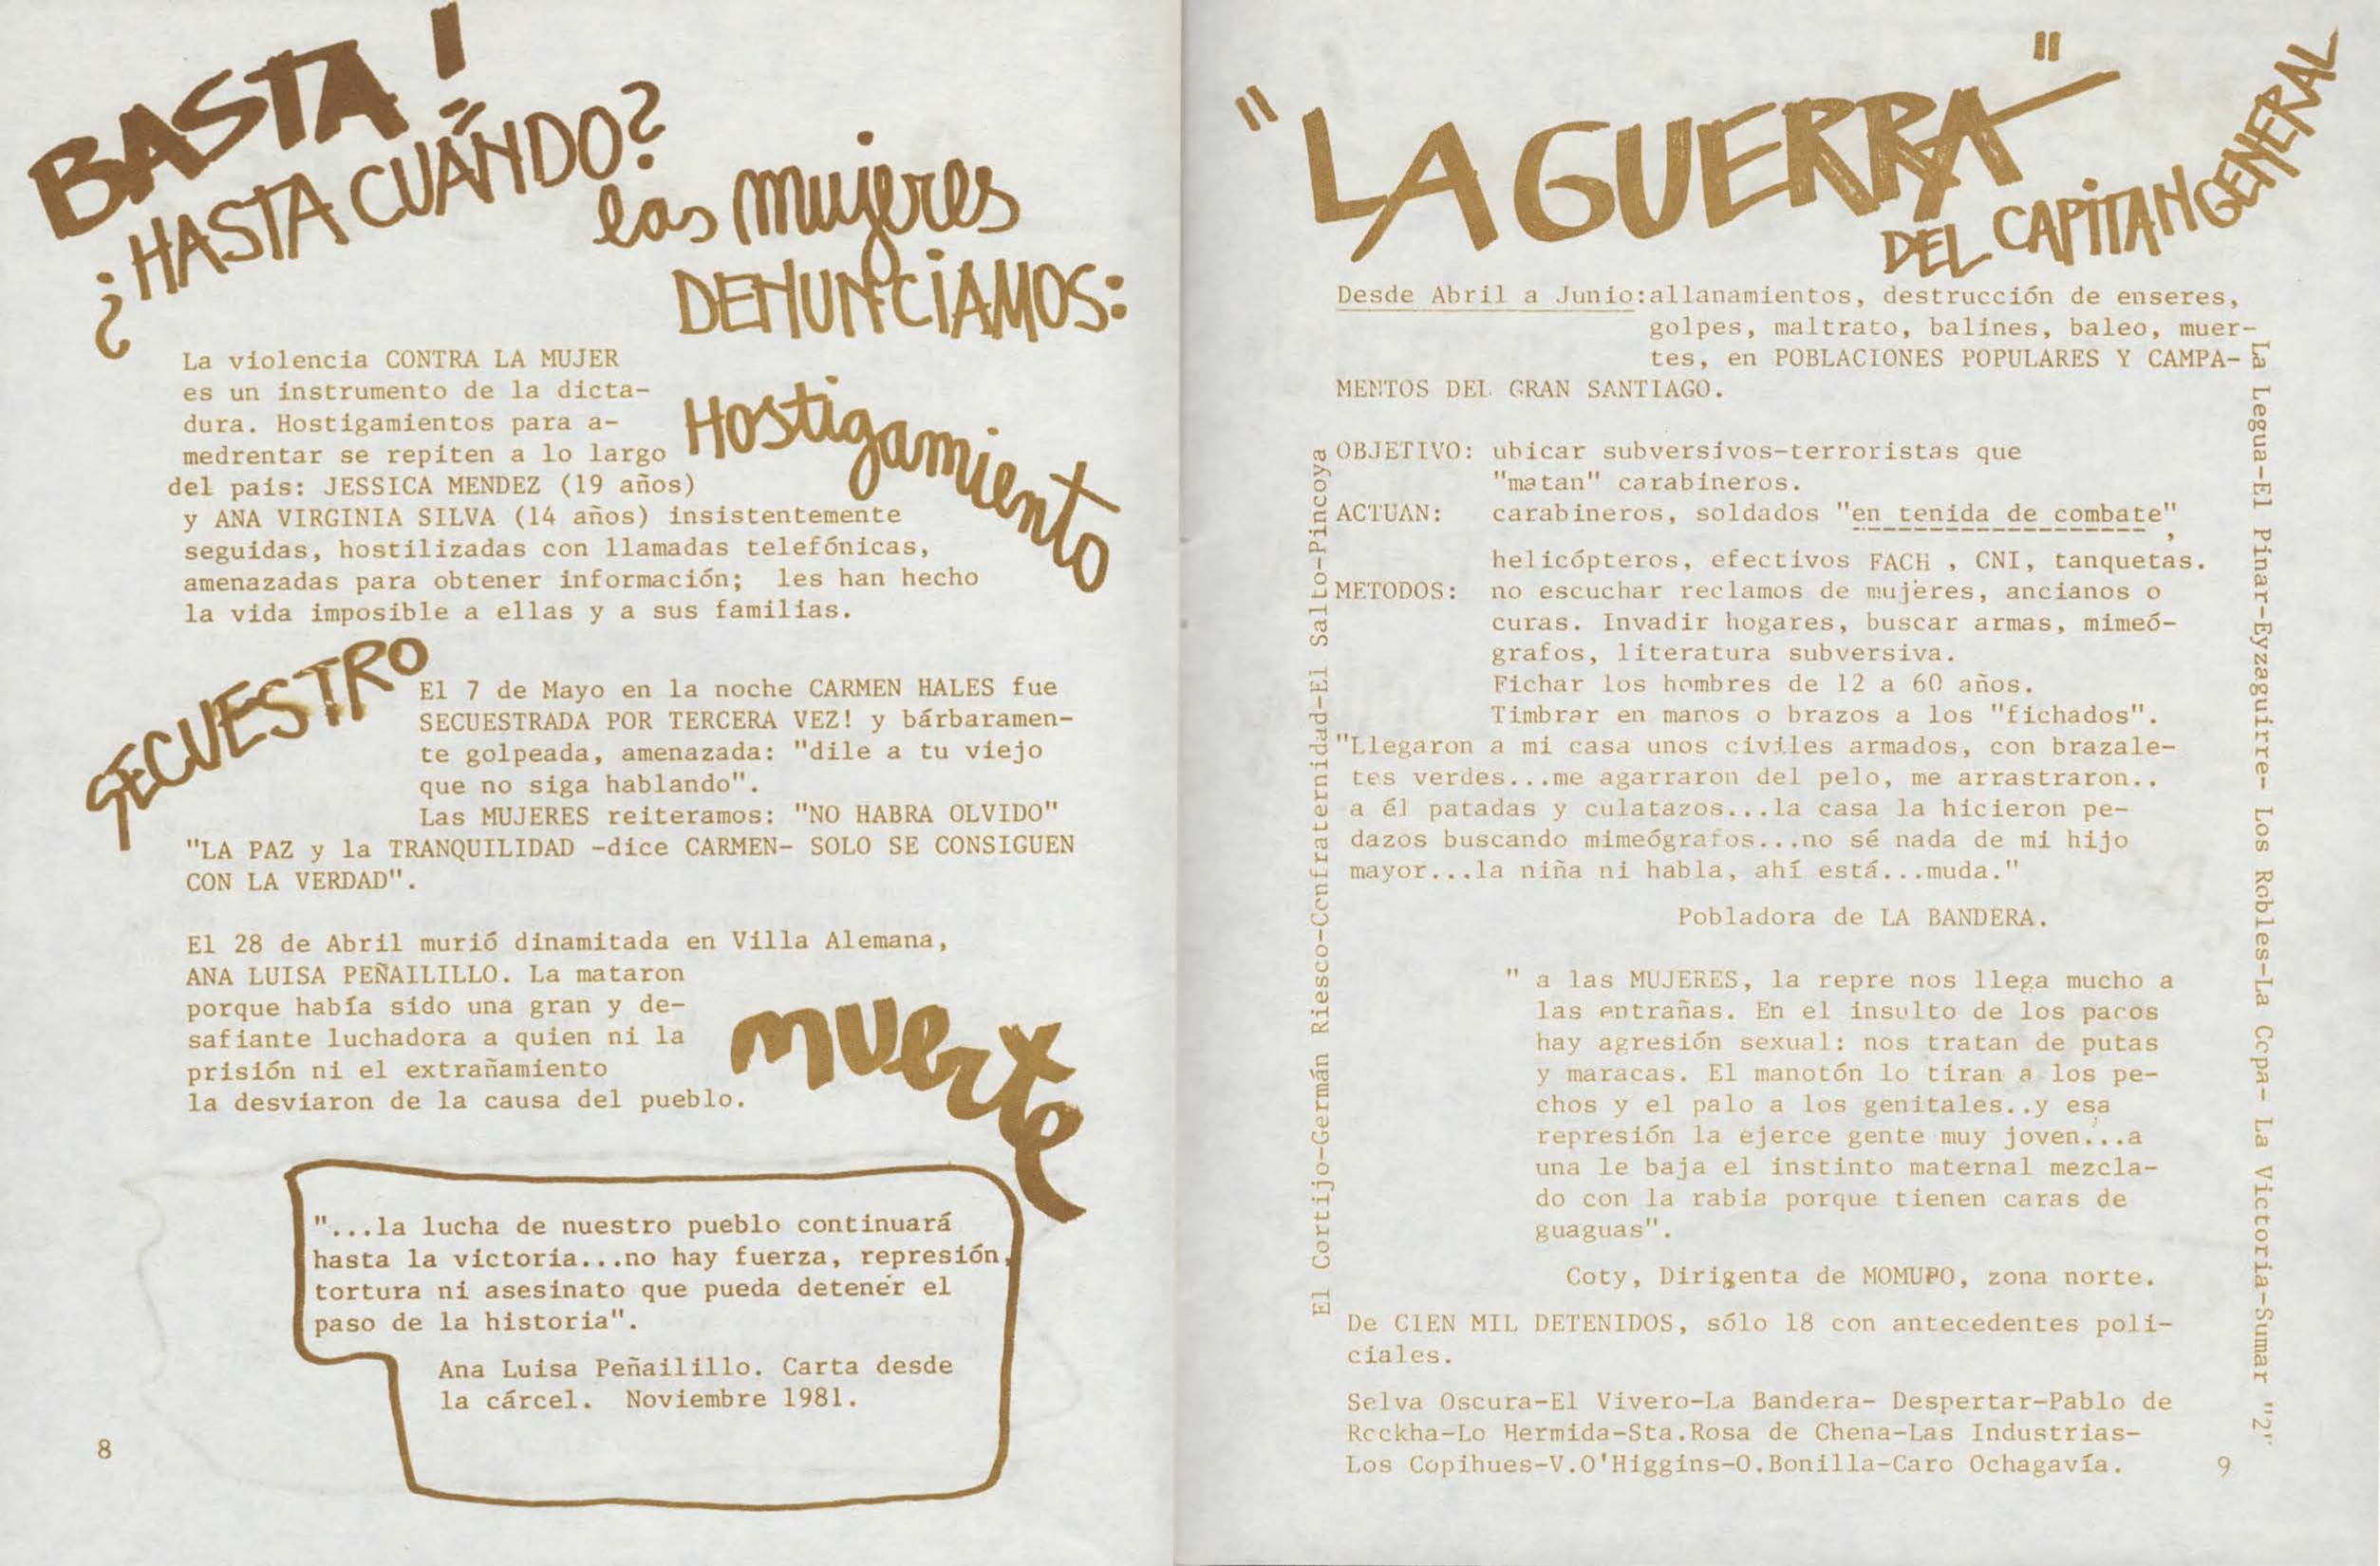 BASTA!
¿HASTA CUÁNDO?
las mujeres
DENUNCIAMOS:
La violencia CONTRA LA MUJER
es un instrumento de la dicta-
dura. Hostigamientos para a-
medrentar se repiten a lo largo
del pais: JESSICA MENDEZ (19 años)
y ANA VIRGINIA SILVA (14 años) insistentemente
seguidas, hostilizadas con llamadas telefónicas,
amenazadas para obtener información; les han hecho
la vida imposible a ellas y a sus familias.
Hostigamiento
SECUESTRO
El 7 de Mayo en la noche CARMEN HALES fue
SECUESTRADA POR TERCERA VEZ! y bárbaramen-
te golpeada, amenazada: "dile a tu viejo
que no siga hablando".
Las MUJERES reiteramos: "NO HABRA OLVIDO"
"LA PAZ y la TRANQUILIDAD -dice CARMEN- SOLO SE CONSIGUEN
CON LA VERDAD".
El 28 de Abril murió dinamitada en Villa Alemana,
ANA LUISA PEÑAILILLO. La mataron
porque había sido una gran y de-
safiante luchadora a quien ni la
prisión ni el extrañamiento
la desviaron de la causa del pueblo.
muerte
"...la lucha de nuestro pueblo continuará
hasta la victoria...no hay fuerza, represión,
tortura ni asesinato que pueda detener el
paso de la historia".
Ana Luisa Peñailillo. Carta desde
la cárcel. Noviembre 1981.
8
"LA GUERRA"
DEL CAPITAN GENERAL
Desde Abril a Junio:allanamientos, destrucción de enseres,
golpes, maltrato, balines, baleo, muer-
tes, en POBLACIONES POPULARES Y CAMPA-
MENTOS DEL GRAN SANTIAGO.
OBJETIVO: ubicar subversivos-terroristas que
"matan" carabineros.
ACTUAN: carabineros, soldados "en tenida de combate",
helicópteros, efectivos FACH , CNI, tanquetas.
METODOS: no escuchar reclamos de mujeres, ancianos o
curas. Invadir hogares, buscar armas, mimeó-
grafos, literatura subversiva.
Fichar los hombres de 12 a 60 años.
Timbrar en manos o brazos a los "fichados".
"Llegaron a mi casa unos civiles armados, con brazale-
tes verdes...me agarraron del pelo, me arrastraron..
a él patadas y culatazos...la casa la hicieron pe-
dazos buscando mimeógrafos...no sé nada de mi hijo
mayor...la niña ni habla, ahí está...muda."
Pobladora de LA BANDERA.
" a las MUJERES, la repre nos llega mucho a
las entrañas. En el insulto de los pacos
hay agresión sexual: nos tratan de putas
y maracas. El manotón lo tiran a los pe-
chos y el palo a los genitales..y esa
represión la ejerce gente muy joven...a
una le baja el instinto maternal mezcla-
do con la rabia porque tienen caras de
guaguas".
Coty, Dirigenta de MOMUPO, zona norte.
De CIEN MIL DETENIDOS, sólo 18 con antecedentes poli-
ciales.
Selva Oscura-El Vivero-La Bandera- Despertar-Pablo de
Rockha-Lo Hermida-Sta.Rosa de Chena-Las Industrias-
Los Copihues-V.O'Higgins-O.Bonilla-Caro Ochagavía.
El Cortijo-Germán Riesco-Confraternidad-El Salto-Pincoya
La Legua-El Pinar-Eyzaguirre- Los Robles-La Copa- La Victoria-Sumar "2"
9